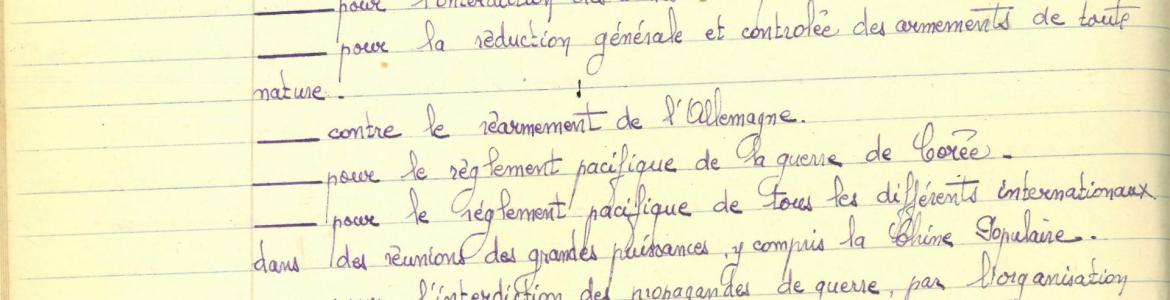 ____ pour l'interdiction des
____ pour la réduction générale et controlée des armements de toute
nature.
____ contre le réarmement de l'Allemagne.
____ pour le règlement pacifique de la guerre de Corée.
____ pour le réglement pacifique de tous les différents internationaux
dans des réunions des grandes puissances, y compris la Chine Populaire.
l'interdiction des propagandes de guerre, par l'organisation